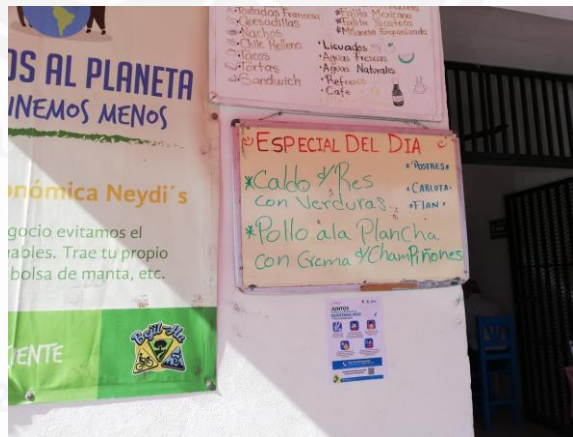 OS AL PLANETA
INEMOS MENOS
onómica Neydi's
gocio evitamos el
ables. Trae tu propio
bolsa de manta, etc.
IENTE
Tostadas Francesa
Quesadillas
Nachos
Chile Relleno
Tacos
Tortas
Sandwich
*Fajita Mexicana
*Milanesa Empanizada
•Licuados
•Aguas Frescas
•Aguas Naturales
•Refrescos
•Cafe
ESPECIAL DEL DIA
*Caldo d/Res
con Verduras.
*Pollo ala Plancha
con Crema d/ChamPiñones
•POSTRES•
•CARLOTA•
•FLAN•
JUNTOS